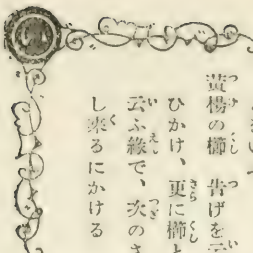 黄楊の櫛 告げを云
ひかけ、更に櫛と
云ふ緣で、次のさ
し來るにかける